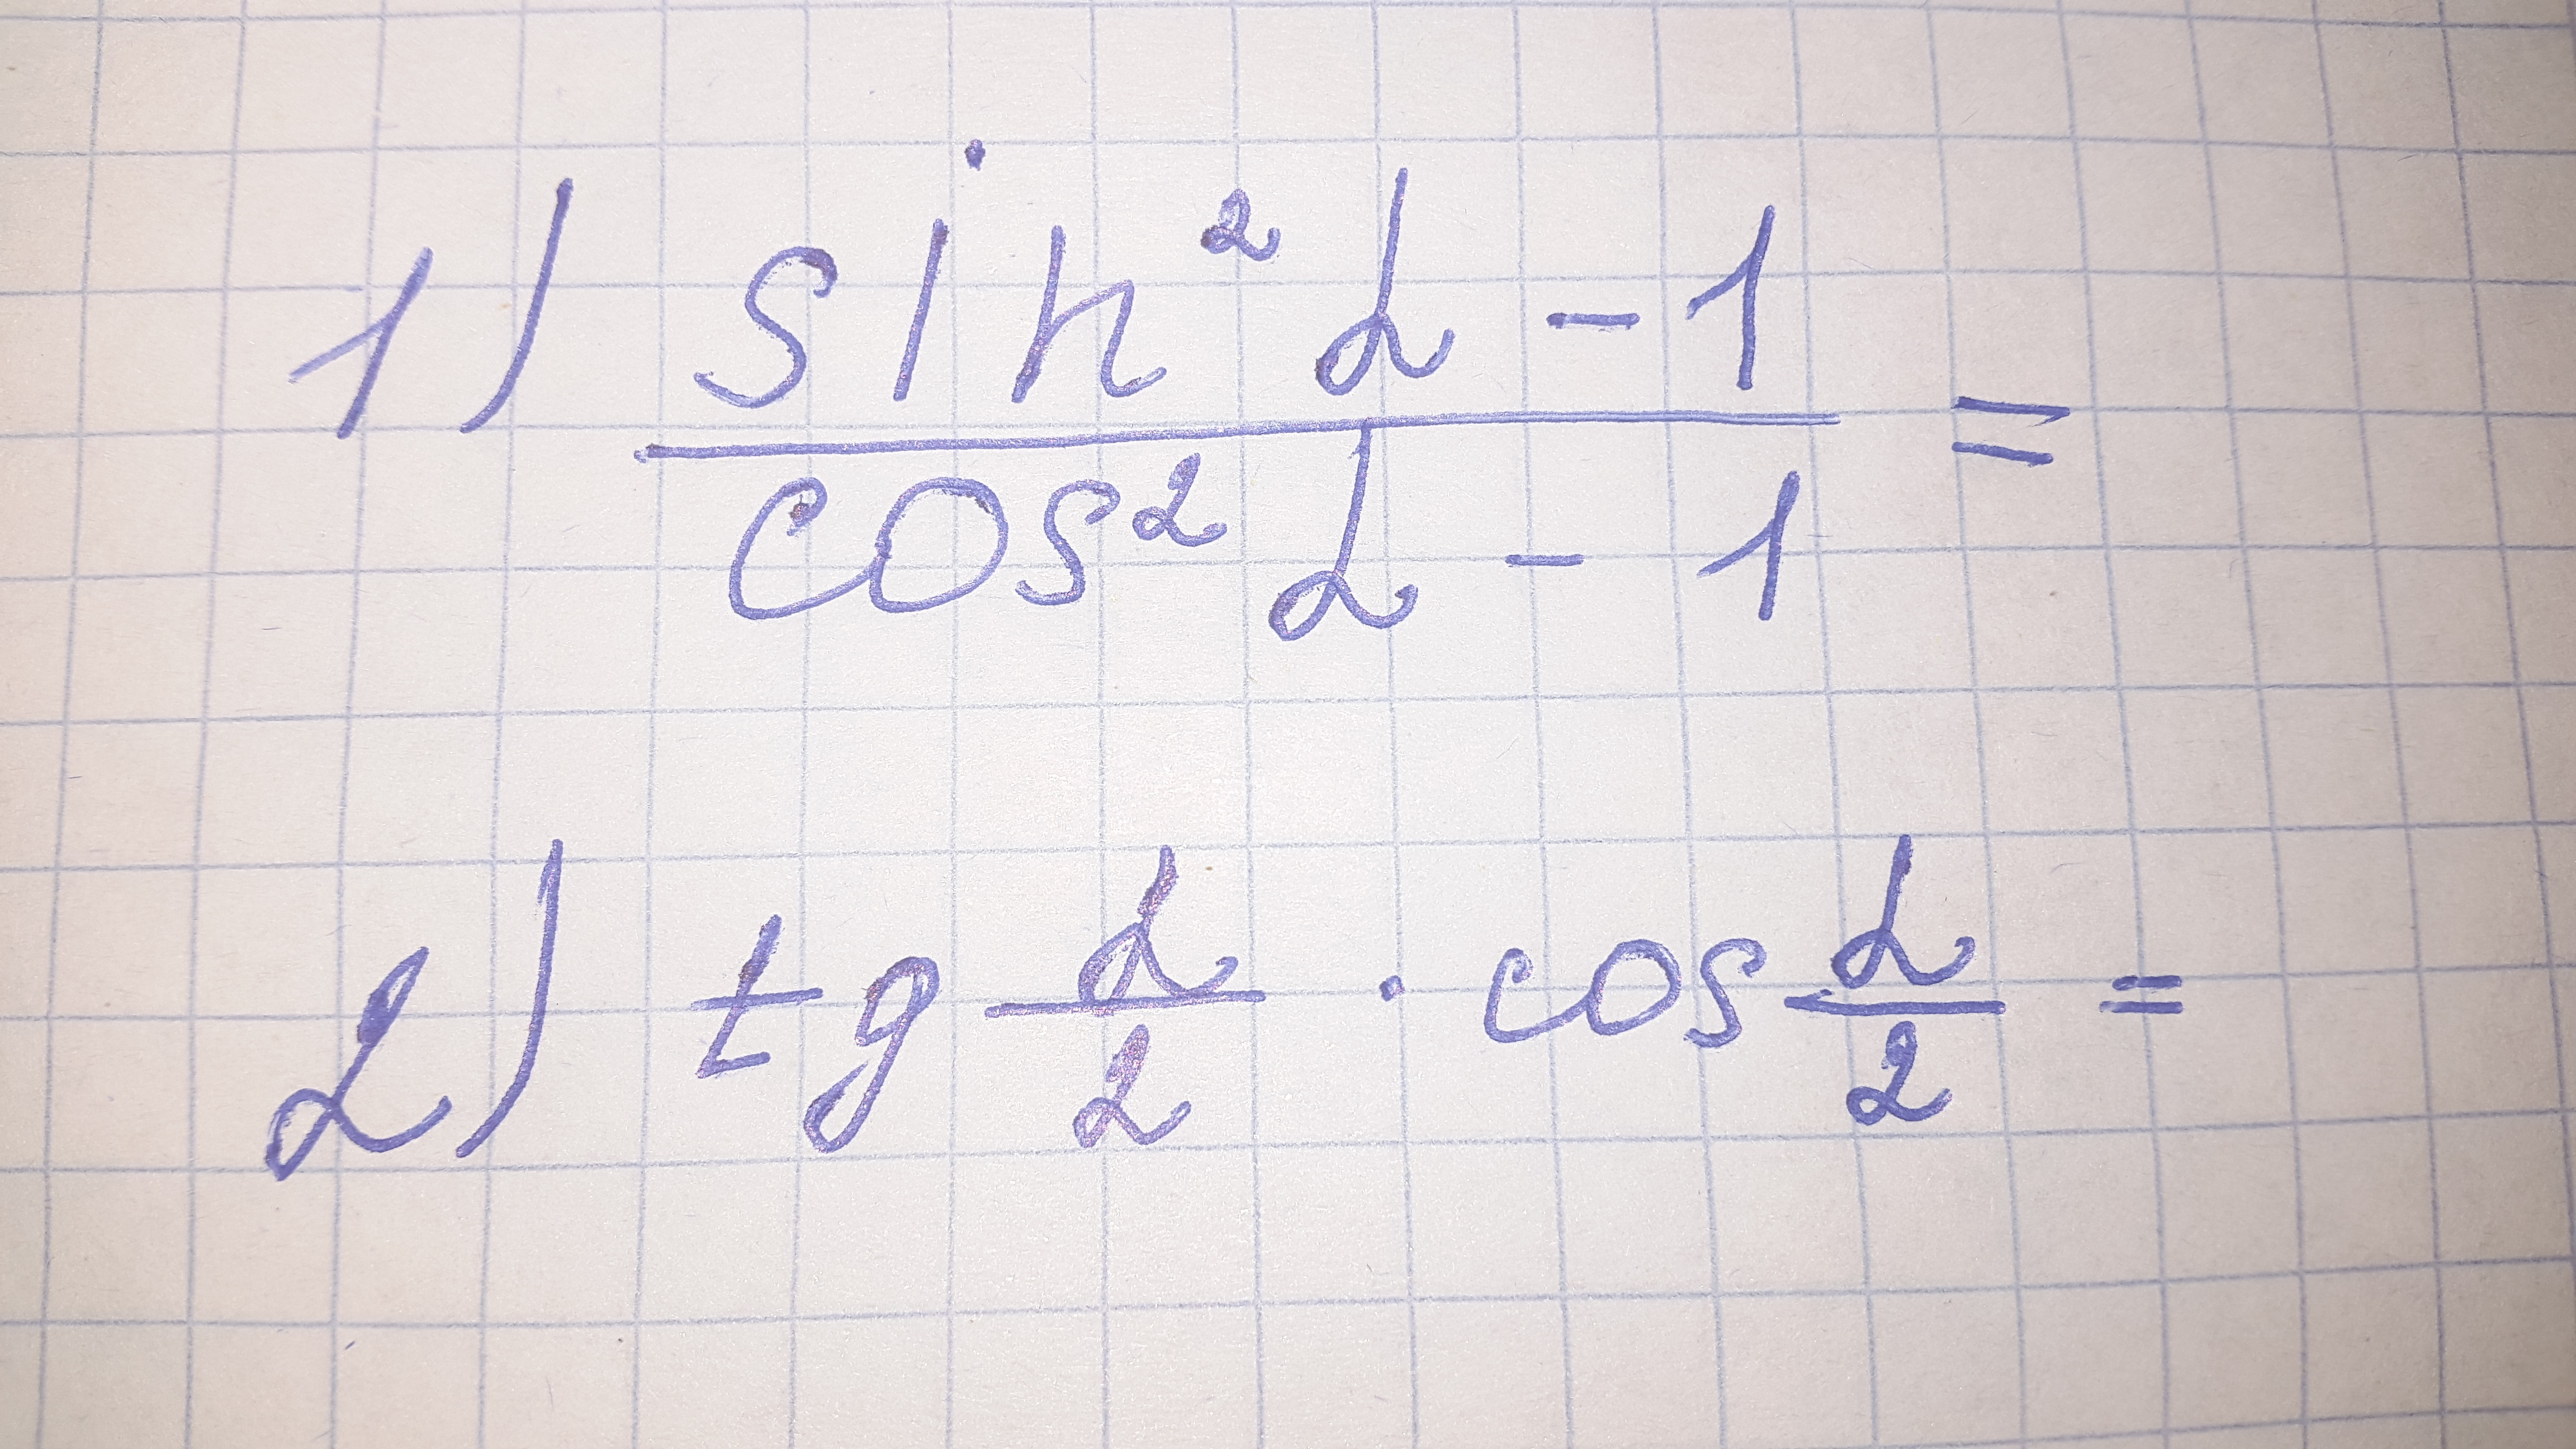 1) sin² α - 1
cos² α - 1 =
2) tg α/2 · cos α/2 =